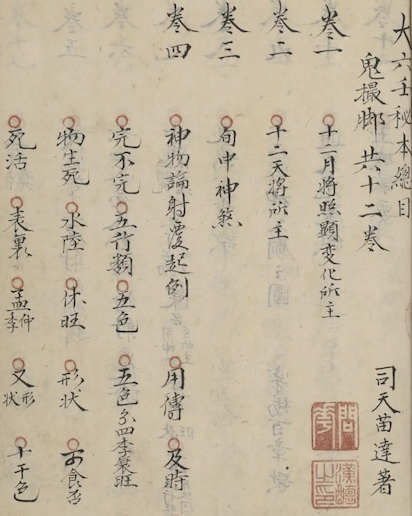 大六壬秘本總目
鬼撮脚 共十二卷
司天苗達著
卷一 十二月將照顯变化所主
卷二 十二天將所主
卷三 旬中神煞
卷四 神物論射覆起例 用傳 及時
完不完 五行類 五色 五色分四季衰旺
物生死 水陸 休旺 形状 可食否
死活 表裏 孟仲季 又形状 十干色